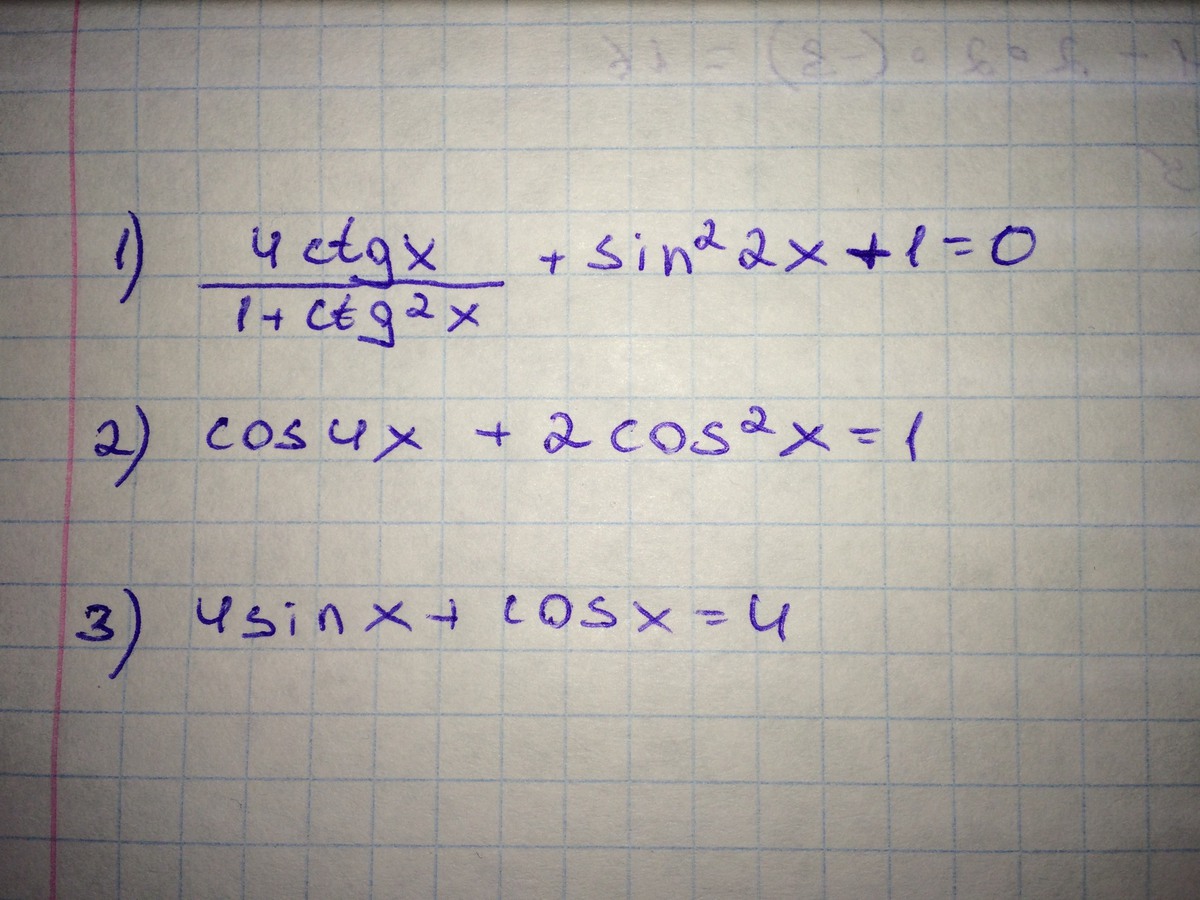 1) 4ctgx / 1+ctg²x + sin²2x+1=0
2) cos4x + 2cos²x=1
3) 4sinx+cosx=4